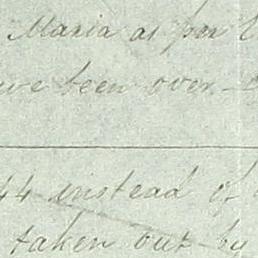 Maria as per
been over-
44 instead of
taken out by